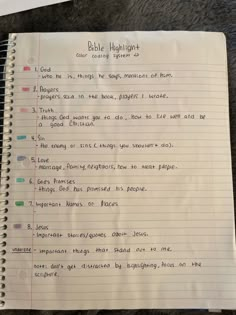 Bible Highlight
color coding system
1. God
- who he is, things he says, mentions of him.
2. Prayers
- prayers said in the book, prayers I wrote.
3. Truth
- things God wants you to do, how to live well and be
a good Christian.
4. Sin
- the enemy or sins (things you shouldn't do).
5. Love
- marriage, family, neighbors, how to treat people.
6. God's Promises
- things God has promised his people.
7. Important Names or Places
8. Jesus
- Important stories/quotes about Jesus.
underline - important things that stand out to me.
note: don't get distracted by highlighting, focus on the
scripture.